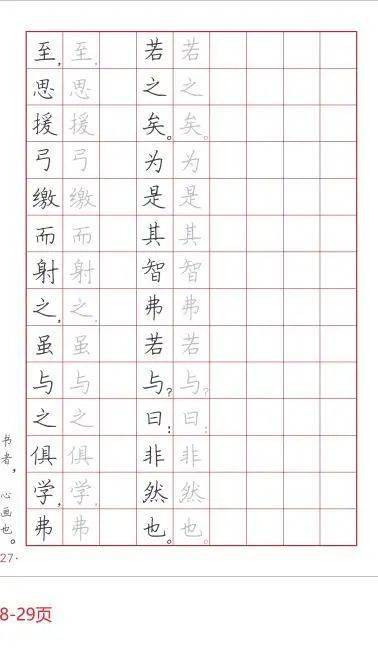 至，思援弓缴而射之，虽与之俱学，弗
至，思援弓缴而射之，虽与之俱学，弗
若之矣。为是其智弗若与？曰：非然也。
若之矣。为是其智弗若与？曰：非然也。
书者，心画也。
27·
8-29页